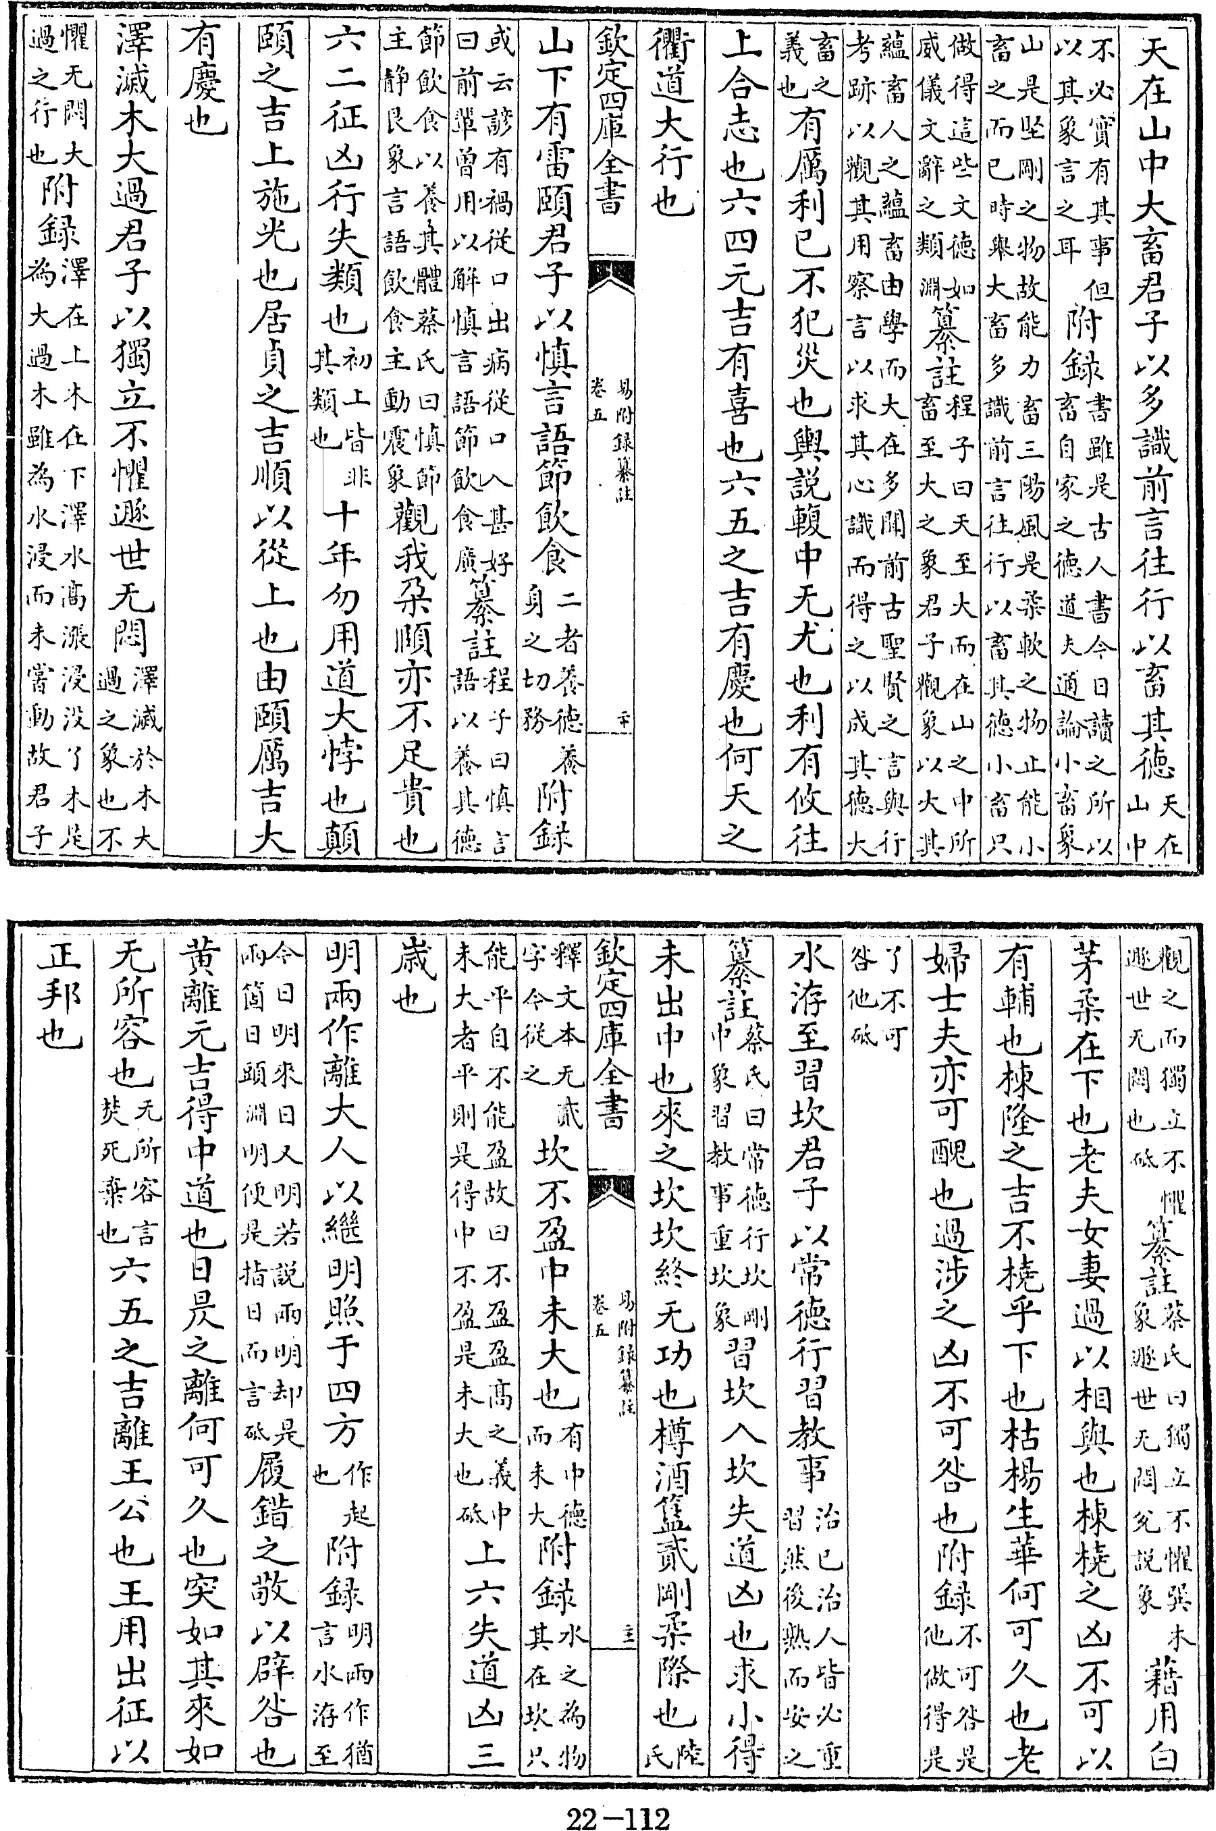 天在山中大畜君子以多識前言往行以畜其德天在山中
不必實有其事但以其象言之耳附録書雖是古人書今日讀之所以畜自家之德道夫通論小畜象
山是堅剛之物故能力畜三陽風是柔軟之物止能小畜之而已時舉大畜多識前言往行以畜其德小畜只
做得這些文德如威儀文辭之類淵纂註程子曰天至大而在山之中所畜至大之象君子觀象以大其
蘊畜人之蘊畜由學而大在多聞前古聖賢之言與行考跡以觀其用察言以求其心識而得之以成其德大
畜之義也有厲利已不犯災也輿説輹中无尤也利有攸往
上合志也六四元吉有喜也六五之吉有慶也何天之
衢道大行也
欽定四庫全書 易附録纂註 卷五 二十
山下有雷頤君子以慎言語節飲食二者養德養身之切務附録
或云諺有禍從口出病從口入甚好曰前輩曾用以解慎言語節飲食廣纂註程子曰慎言語以養其德
節飲食以養其體蔡氏曰慎節主静艮象言語飲食主動震象觀我朶頤亦不足貴也
六二征凶行失類也初上皆非其類也十年勿用道大悖也顛
頤之吉上施光也居貞之吉順以從上也由頤厲吉大
有慶也
澤滅木大過君子以獨立不懼遯世无悶澤滅於木大過之象也不
懼无悶大過之行也附録澤在上木在下澤水高漲浸没了木是為大過木雖為水浸而未嘗動故君子
觀之而獨立不懼遯世无悶也砥纂註蔡氏曰獨立不懼巽木象遯世无悶兌説象藉用白
茅柔在下也老夫女妻過以相與也棟橈之凶不可以
有輔也棟隆之吉不橈乎下也枯楊生華何可久也老
婦士夫亦可醜也過涉之凶不可咎也附録不可咎是他做得是
了不可咎他砥
水洊至習坎君子以常德行習教事治已治人皆必重習然後熟而安之
纂註蔡氏曰常德行坎剛中象習教事重坎象習坎入坎失道凶也求小得
未出中也來之坎坎終无功也樽酒簋貳剛柔際也陸氏
欽定四庫全書 易附録纂註 卷五 二十一
釋文本无貳字今從之坎不盈中未大也有中德而未大附録水之為物其在坎只
能平自不能盈故曰不盈盈高之義中未大者平則是得中不盈是未大也砥上六失道凶三
歲也
明兩作離大人以繼明照于四方作起也附録明兩作猶言水洊至
今日明來日又明若説兩明却是兩箇日頭淵明便是指日而言砥履錯之敬以辟咎也
黄離元吉得中道也日昃之離何可久也突如其來如
无所容也无所容言焚死棄也六五之吉離王公也王用出征以
正邦也
22-112